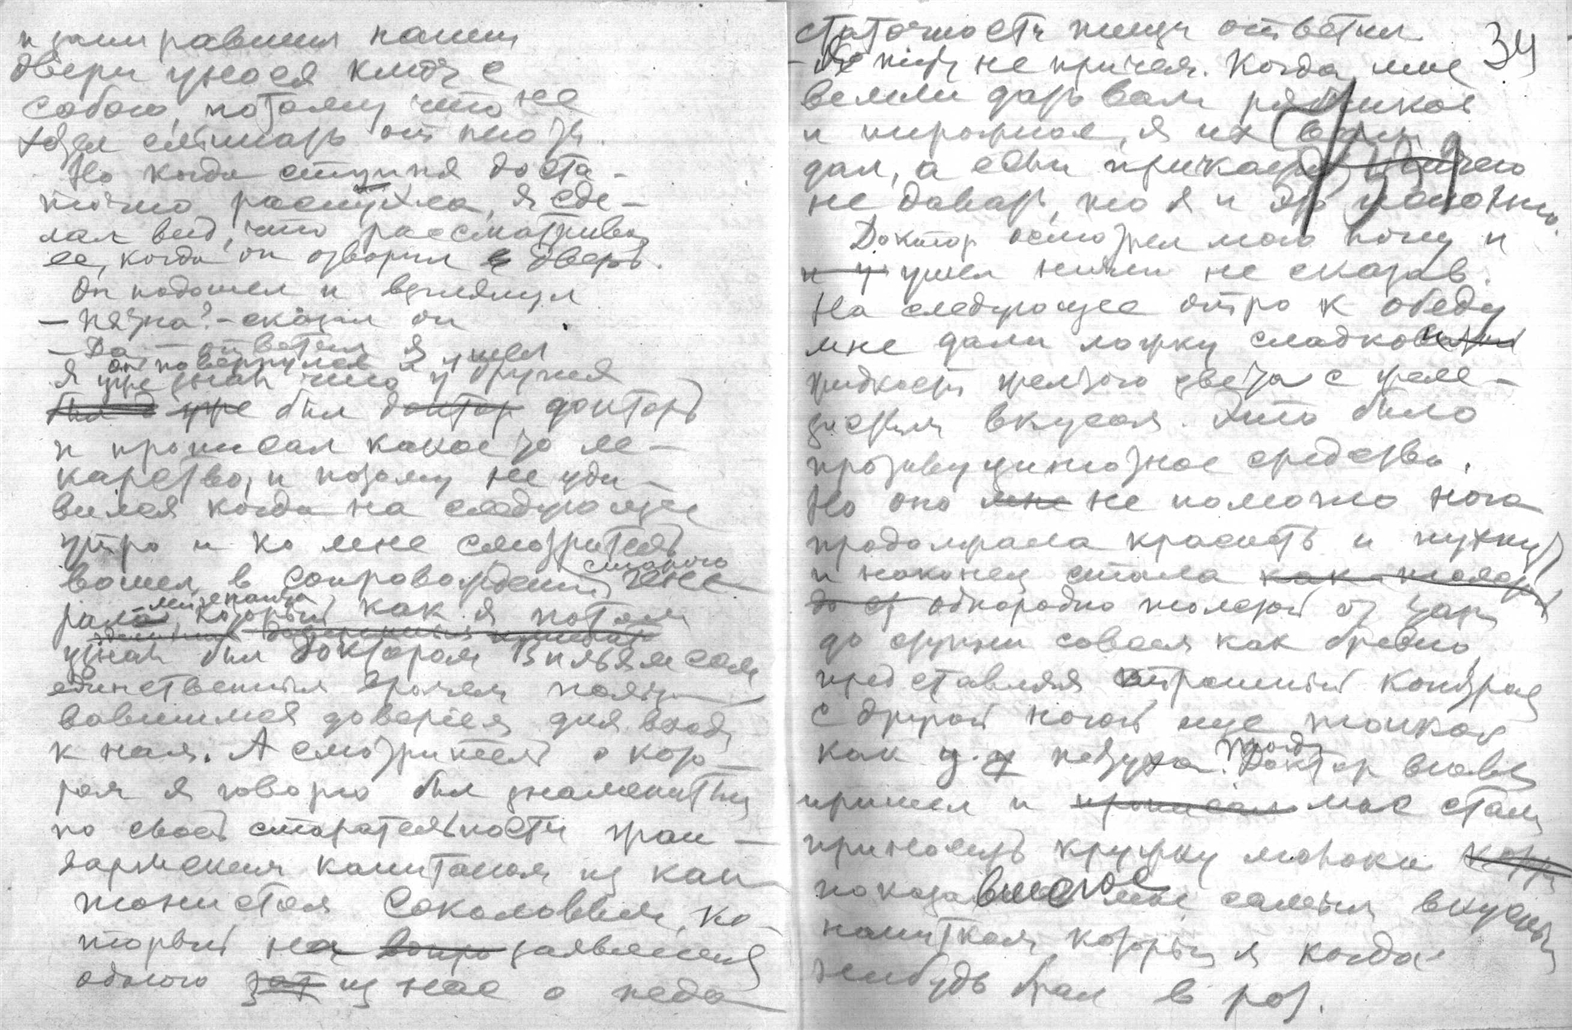 и запиравший наши
двери уносил ключ с
собою, потому что не
хотел слишать от него
Но когда ступня доста-
точно распухла, я сде-
лал вид, что рассматриваю
ее, когда он отворил дверь.
Он подошел и взглянул
— Пятна? — сказал он
— Да — ответил я
он повернулся и ушел
Я уже знал что у других
был доктор
и прописал какое то ле-
карство, и потому не уди-
вился когда на следующее
утро и ко мне смотритель
вошел в сопровождении старого
лейтенанта, который как я потом
узнал был доктором Вильямсом
единственным врачем пользо-
вавшимся доверием для входа
к нам. А смотритель о кото-
ром я говорю был знаменитый
по своей старательности жан-
дармский капитан из кан-
тонистов Соколовым, ко-
торый на заявления
одного из нас о недо-
статочности пищи ответил
34
— Я тут не причем. Когда мне
велели дать вам рябчиков
и пирожное, я их вам
дал, а если прикажут ничего
не давать, то я и это исполню.
Доктор осмотрел мою ногу и
ушел ничего не сказав.
На следующее утро к обеду
мне дали ложку сладковатой
жидкости желтого цвета с желе-
зистым вкусом. Это было
противуцинготное средство.
Но оно не помогло нога
продолжала краснеть и пухнуть
и наконец стала
однородно толстой от
до ступни совсем как бревно
представляя страшный контраст
с другой ногой еще тонкой
как у петуха. Тогда Доктор вновь
пришел и мне стали
приносить кружку молока
показавшегося мне самым вкусным
напитком который я когда
нибудь брал в рот.